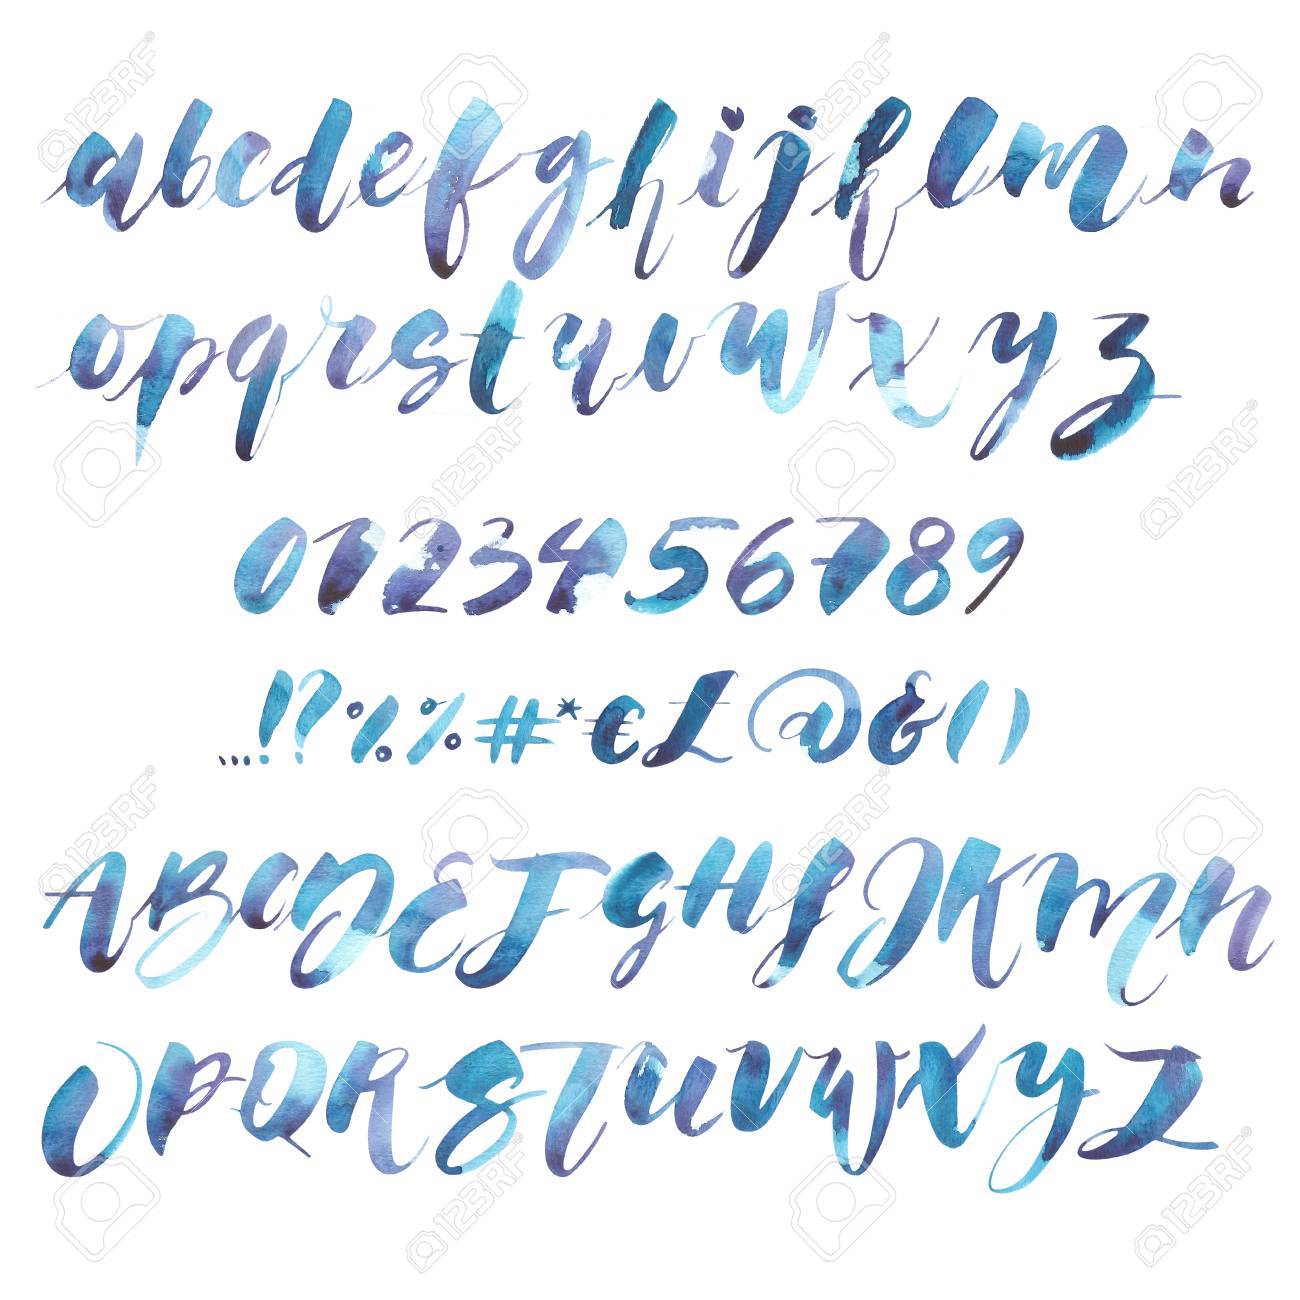 abcdefghijklmn
opqrstuvwxyz
0123456789
...!?:%%#*€£@&()
ABCDEFGHIJKLMN
OPQRSTUVWXYZ
123RF